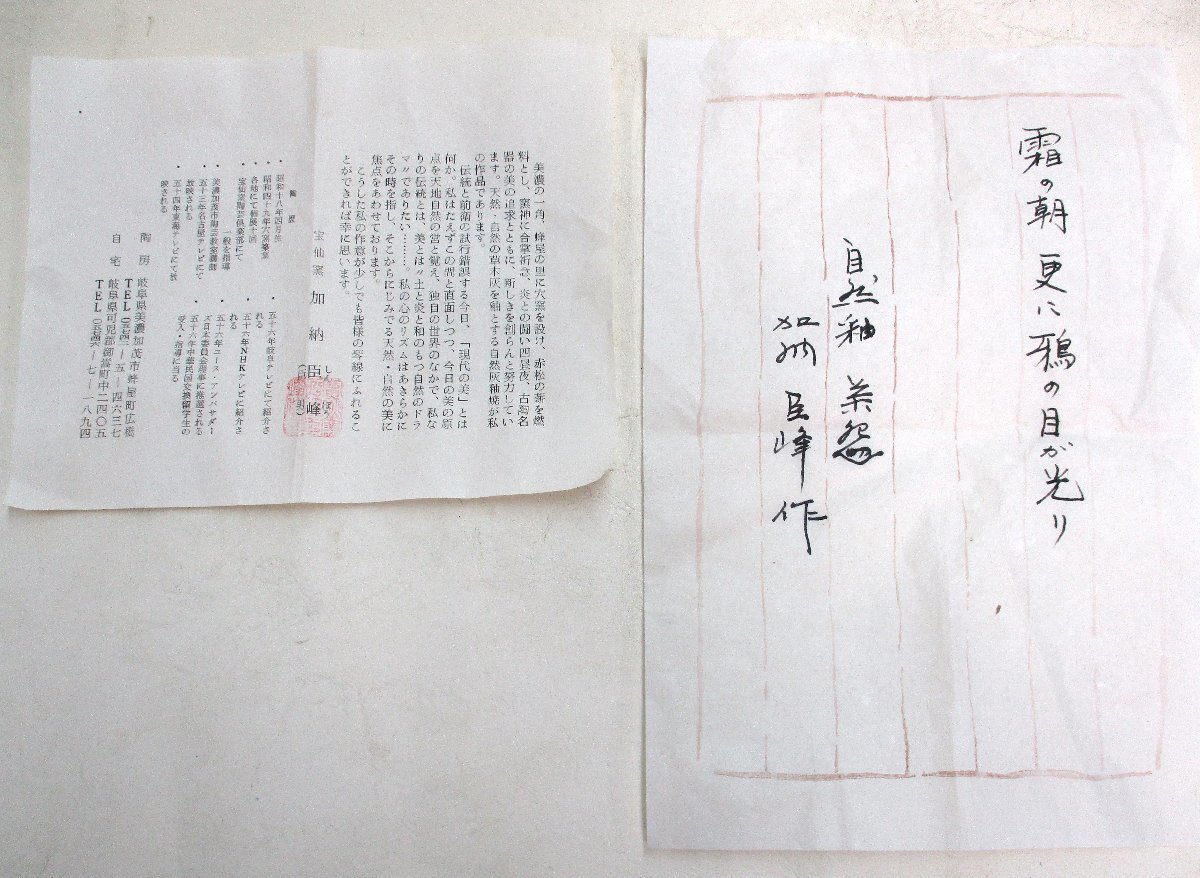 霜の朝 更に鴉の目が光り
自然釉 茶怨
加納臣峰作
美濃の一角、蜂屋の里に穴窯を設け、赤松の薪を燃
料とし、窯神に合掌祈念、炎との闘い四昼夜、古陶名
器の美の追求とともに、新しきを創らんと努力してい
ます。天然・自然の草木灰を釉とする自然灰釉焼が私
の作品であります。
伝統と前衛の試行錯誤する今日、「現代の美」とは
何か。私はたえずこの問と直面しつつ、今日の美の原
点を天地自然の営と覚え、独自の世界のなかで、私な
りの伝統とは、美とは〃土と炎と和のもつ自然のドラ
マ〃でありたい……。私の心のリズムはあきらかに
その時を指し、そこからにじみでる天然・自然の美に
焦点をあわせております。
こうした私の作意が少しでも皆様の琴線にふれるこ
とができれば幸に思います。
宝仙窯 加納臣峰
しんぽう
陶歴
・昭和十八年四月生
・昭和四十九年穴窯築窯
・各地にて個展十回
・宝仙窯陶芸倶楽部にて
一般を指導
・美濃加茂市陶芸教室講師
・五十三年名古屋テレビにて
放映される
・五十四年東海テレビにて放
映される
・五十六年岐阜テレビにて紹介さ
れる
・五十六年NHKテレビに紹介さ
れる
・五十六年ユース・アンバサダー
ズ日本委員会理事に推選される
・五十六年中華民国交換留学生の
受入・指導に当る
陶房 岐阜県美濃加茂市蜂屋町広橋
TEL(〇五七四二)五-四六三七
自宅 岐阜県可児郡御嵩町中二四〇五
TEL(〇五七四六)七-一八九四